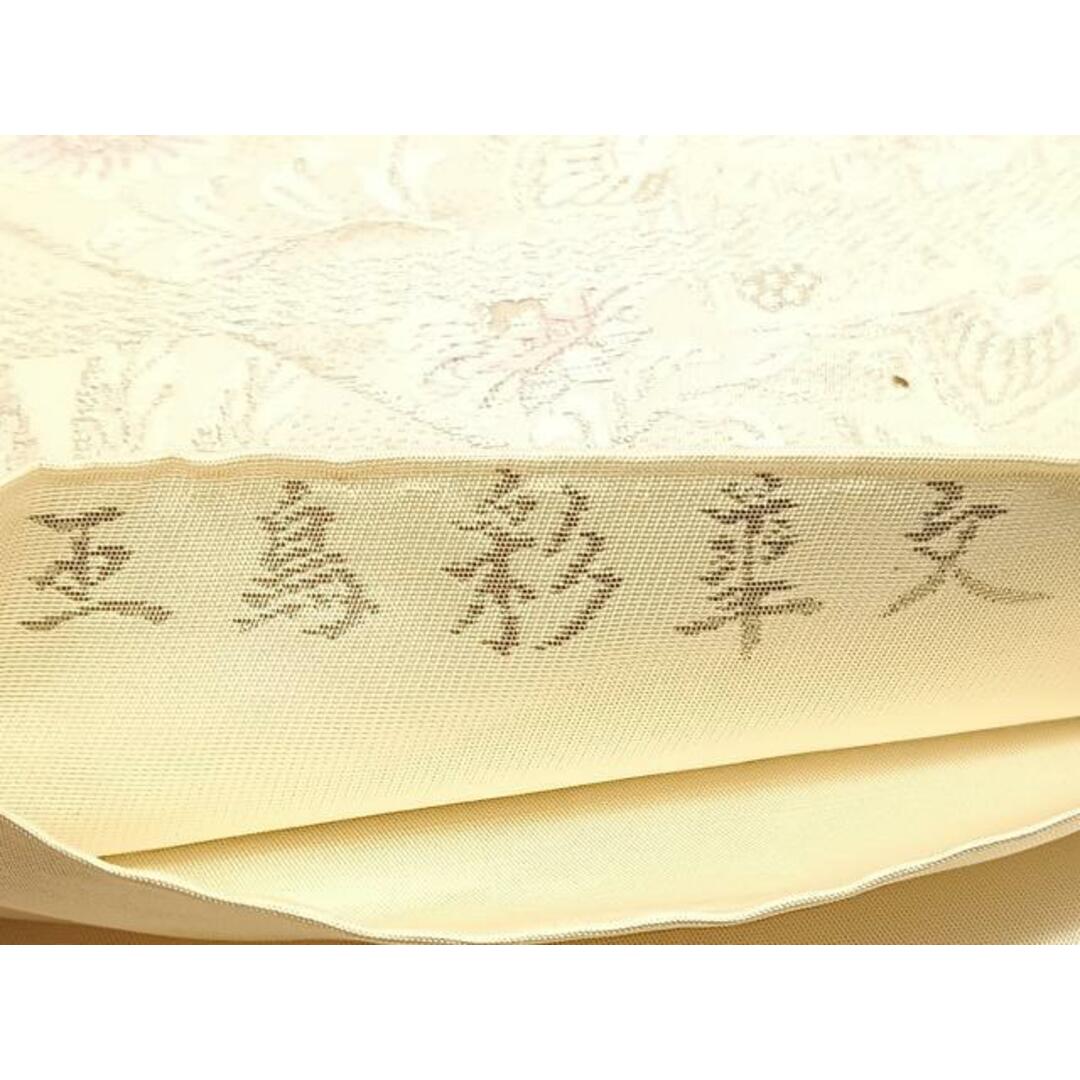 五鳥彩華文